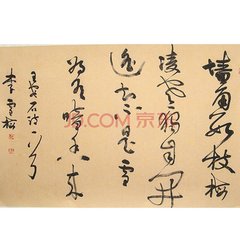 墙角数枝梅
凌寒独自开
遥知不是雪
为有暗香来
王安石诗一首
李雪梅
JD.COM 京东